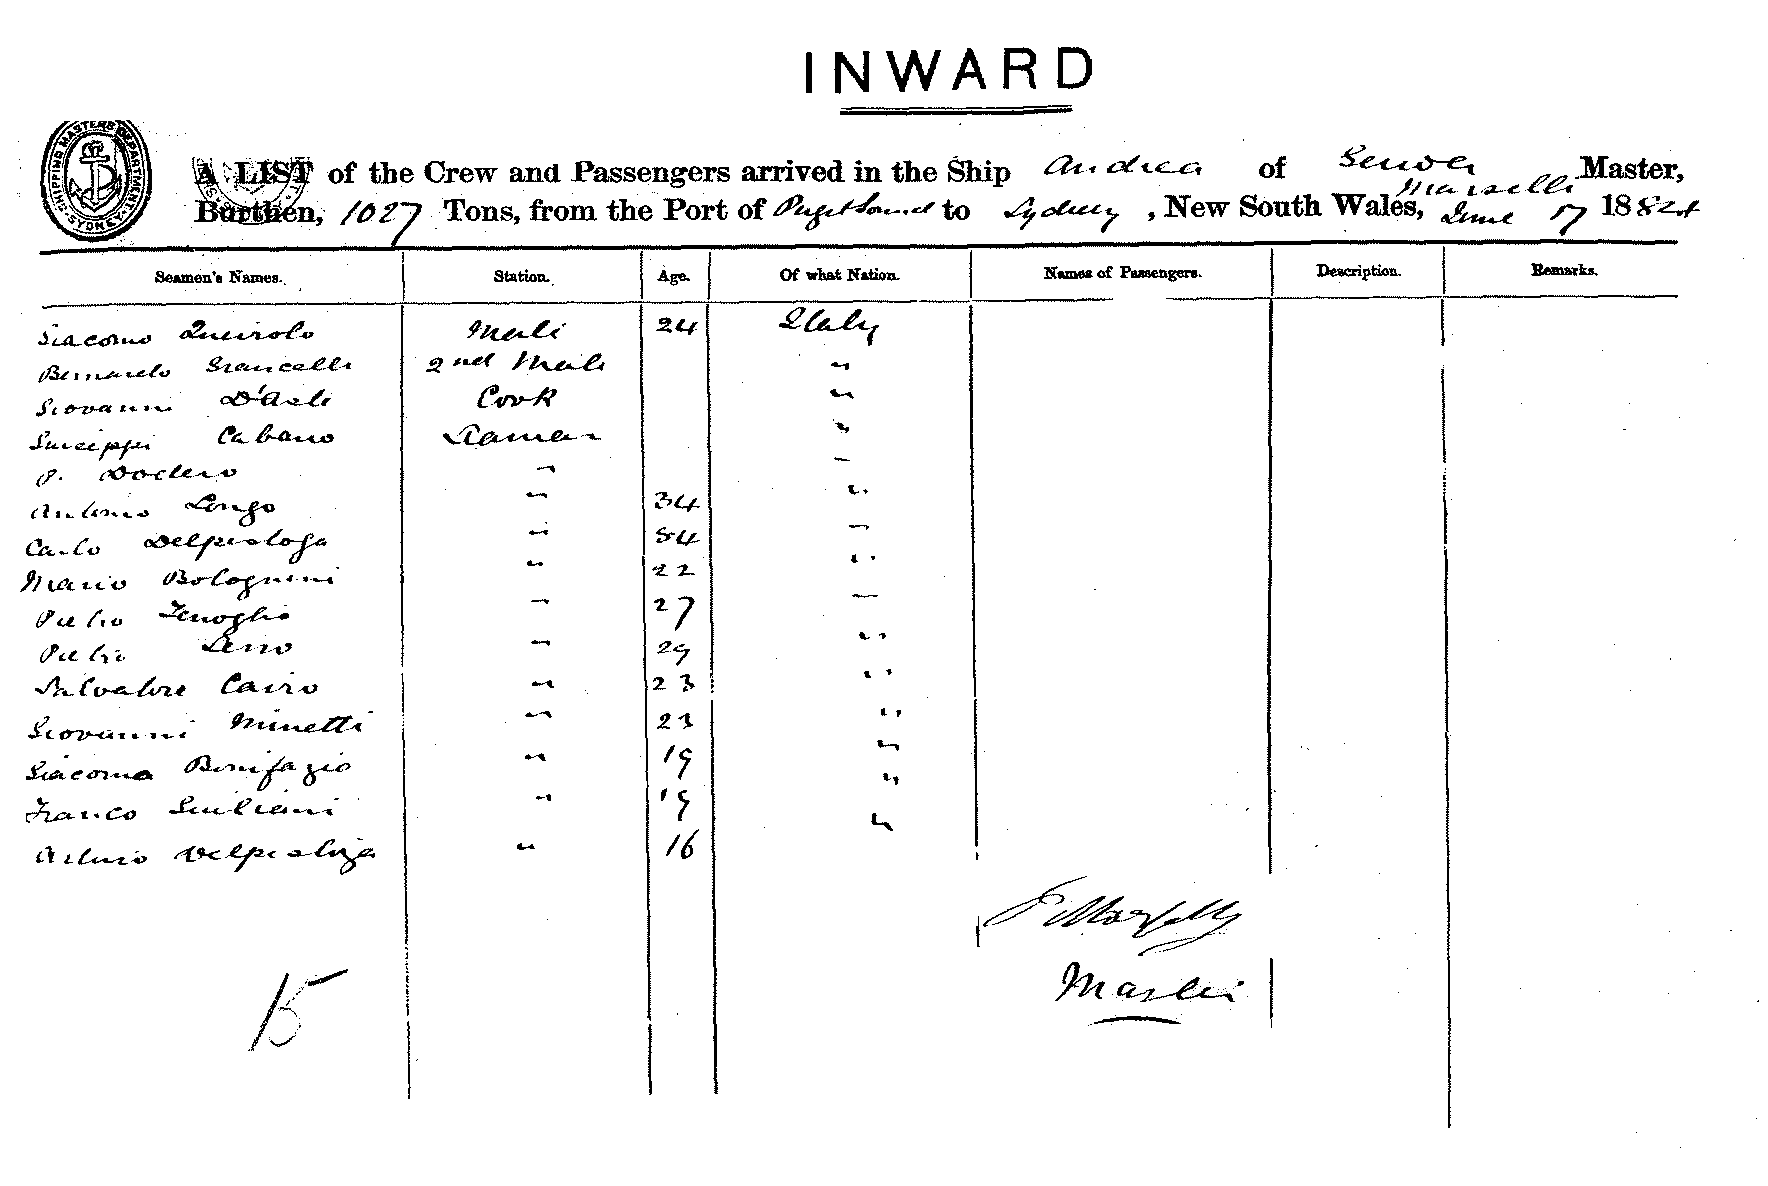 INWARD
SHIPPING MASTERS DEPARTMENT SYDNEY
A LIST of the Crew and Passengers arrived in the Ship Andrea of Genoa Master,
Burthen, 1027 Tons, from the Port of Puget Sound to Sydney, New South Wales, June 17 1884
Seamen's Names. Station. Age. Of what Nation. Names of Passengers. Description. Remarks.
Giacomo Queirolo Mate 24 Italy
Bernardo Grancelli 2nd Mate "
Giovanni D'Aste Cook "
Giuseppi Cabano Seaman "
P. Dodero " "
Antonio Longo " 34 "
Carlo " "
Mario Bolognini " 22 "
Pietro Fenoglio " 27 "
Pietro " 29 "
Salvatore Cairo " 23 "
Giovanni Minetti " 23 "
Giacoma Bonifazio " 19 "
Franco Giuliani " 19 "
Arturo " 16
Master
15